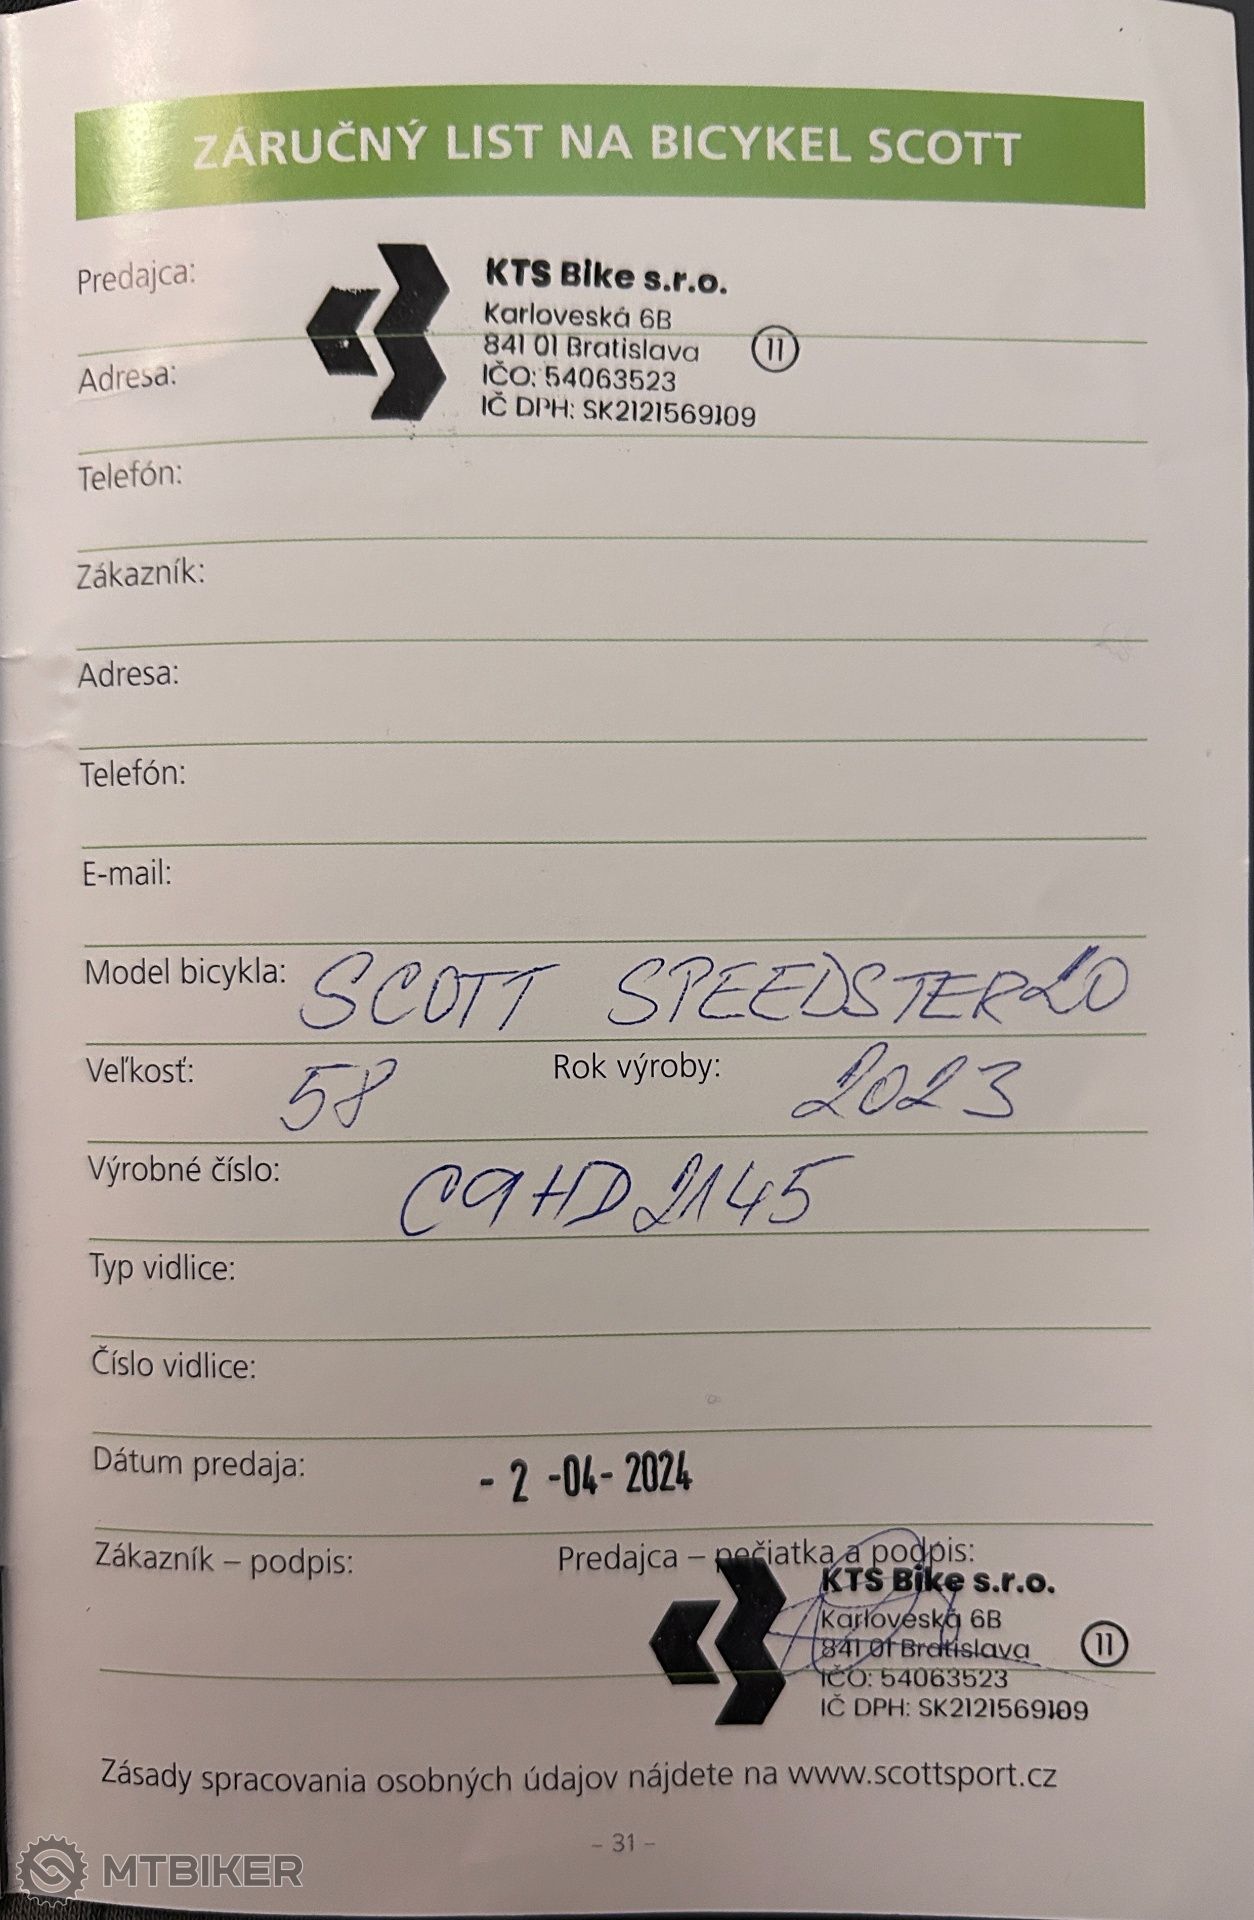 ZÁRUČNÝ LIST NA BICYKEL SCOTT
Predajca:
KTS Bike s.r.o.
Karloveská 6B
841 01 Bratislava
11
Adresa:
IČO: 54063523
IČ DPH: SK2121569109
Telefón:
Zákazník:
Adresa:
Telefón:
E-mail:
Model bicykla: SCOTT SPEEDSTER 20
Veľkosť: 58 Rok výroby: 2023
Výrobné číslo: C9HD2145
Typ vidlice:
Číslo vidlice:
Dátum predaja: - 2 -04- 2024
Zákazník – podpis: Predajca – pečiatka a podpis:
KTS Bike s.r.o.
Karloveská 6B
841 01 Bratislava
11
IČO: 54063523
IČ DPH: SK2121569109
Zásady spracovania osobných údajov nájdete na www.scottsport.cz
– 31 –
MTBIKER